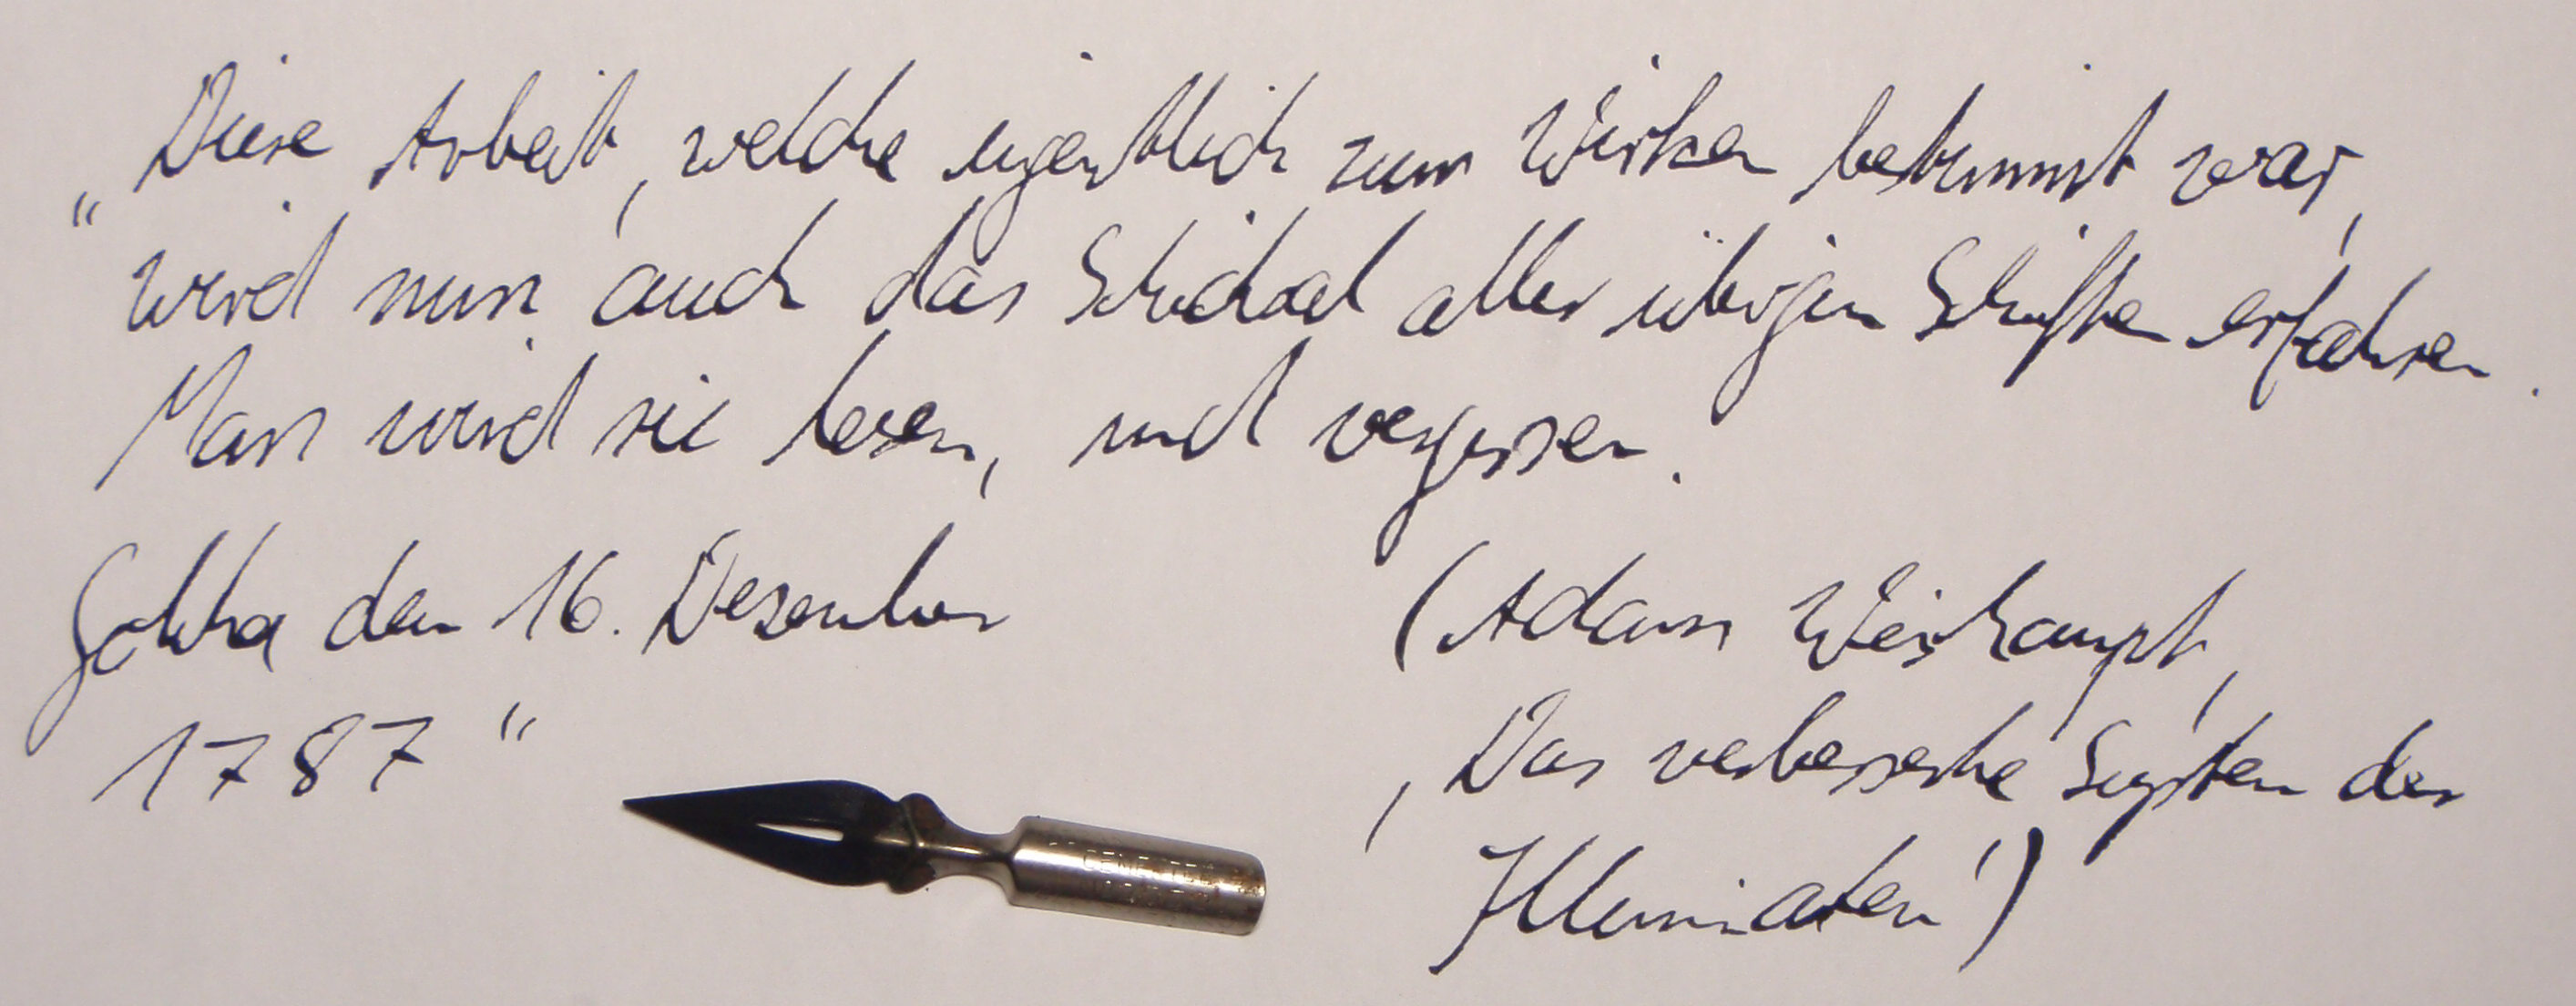 „Diese Arbeit, welche eigentlich zum Wirken bestimmt war,
wird nun auch das Schicksal aller übrigen Schriften erfahren.
Man wird sie lesen, und vergessen.
Gotha den 16. Dezember
1787“
(Adam Weishaupt,
‚Das verbesserte System der
Illuminaten‘)